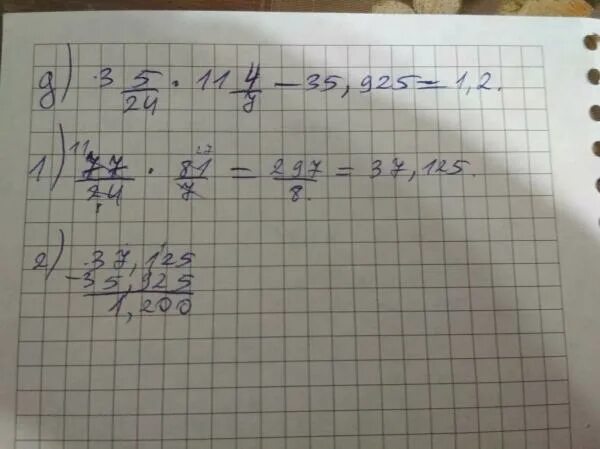 д) 3 5/24 · 11 4/7 − 35,925 = 1,2.
1) 77/24 · 81/7 = 297/8 = 37,125.
11 27
2) 37,125
− 35,925
1,200